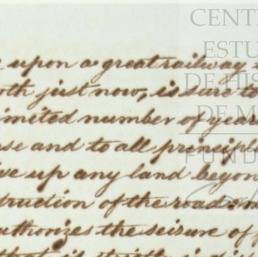 upon a great railway
oth just now, is sure to
imited number of years
se and to all principle
ive up any land beyon
truction of the road
uthorizes the seizure of
that is strictly
CENT
ESTU
DE HIS
DE M
FUND